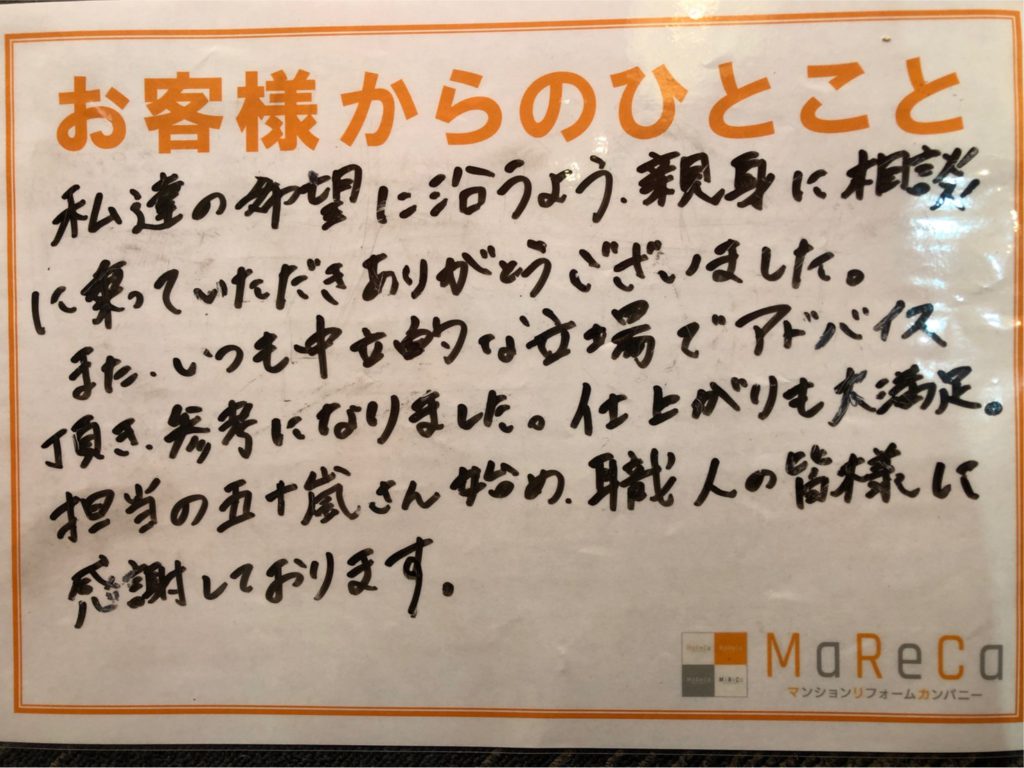 お客様からのひとこと
私達の希望に沿うよう、親身に相談
に乗っていただきありがとうございました。
また、いつも中立的な立場でアドバイス
頂き、参考になりました。仕上がりも大満足。
担当の五十嵐さん始め、職人の皆様に
感謝しております。
MaReCa
マンションリフォームカンパニー